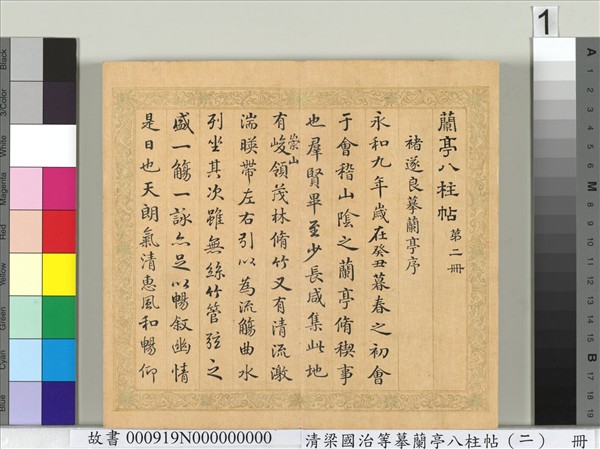 蘭亭八柱帖 第二冊
褚遂良摹蘭亭序
永和九年歲在癸丑暮春之初會
于會稽山陰之蘭亭脩稧事
也羣賢畢至少長咸集此地
有崇山峻領茂林脩竹又有清流激
湍暎帶左右引以為流觴曲水
列坐其次雖無絲竹管弦之
盛一觴一詠亦足以暢敘幽情
是日也天朗氣清惠風和暢仰
故書 000919N000000000 清梁國治等摹蘭亭八柱帖（二） 冊
1
Black
3/Color
White
Magenta
Red
Yellow
Green
Cyan
Blue
A
1
2
3
4
5
6
M
8
9
10
11
12
13
14
15
B
17
18
19